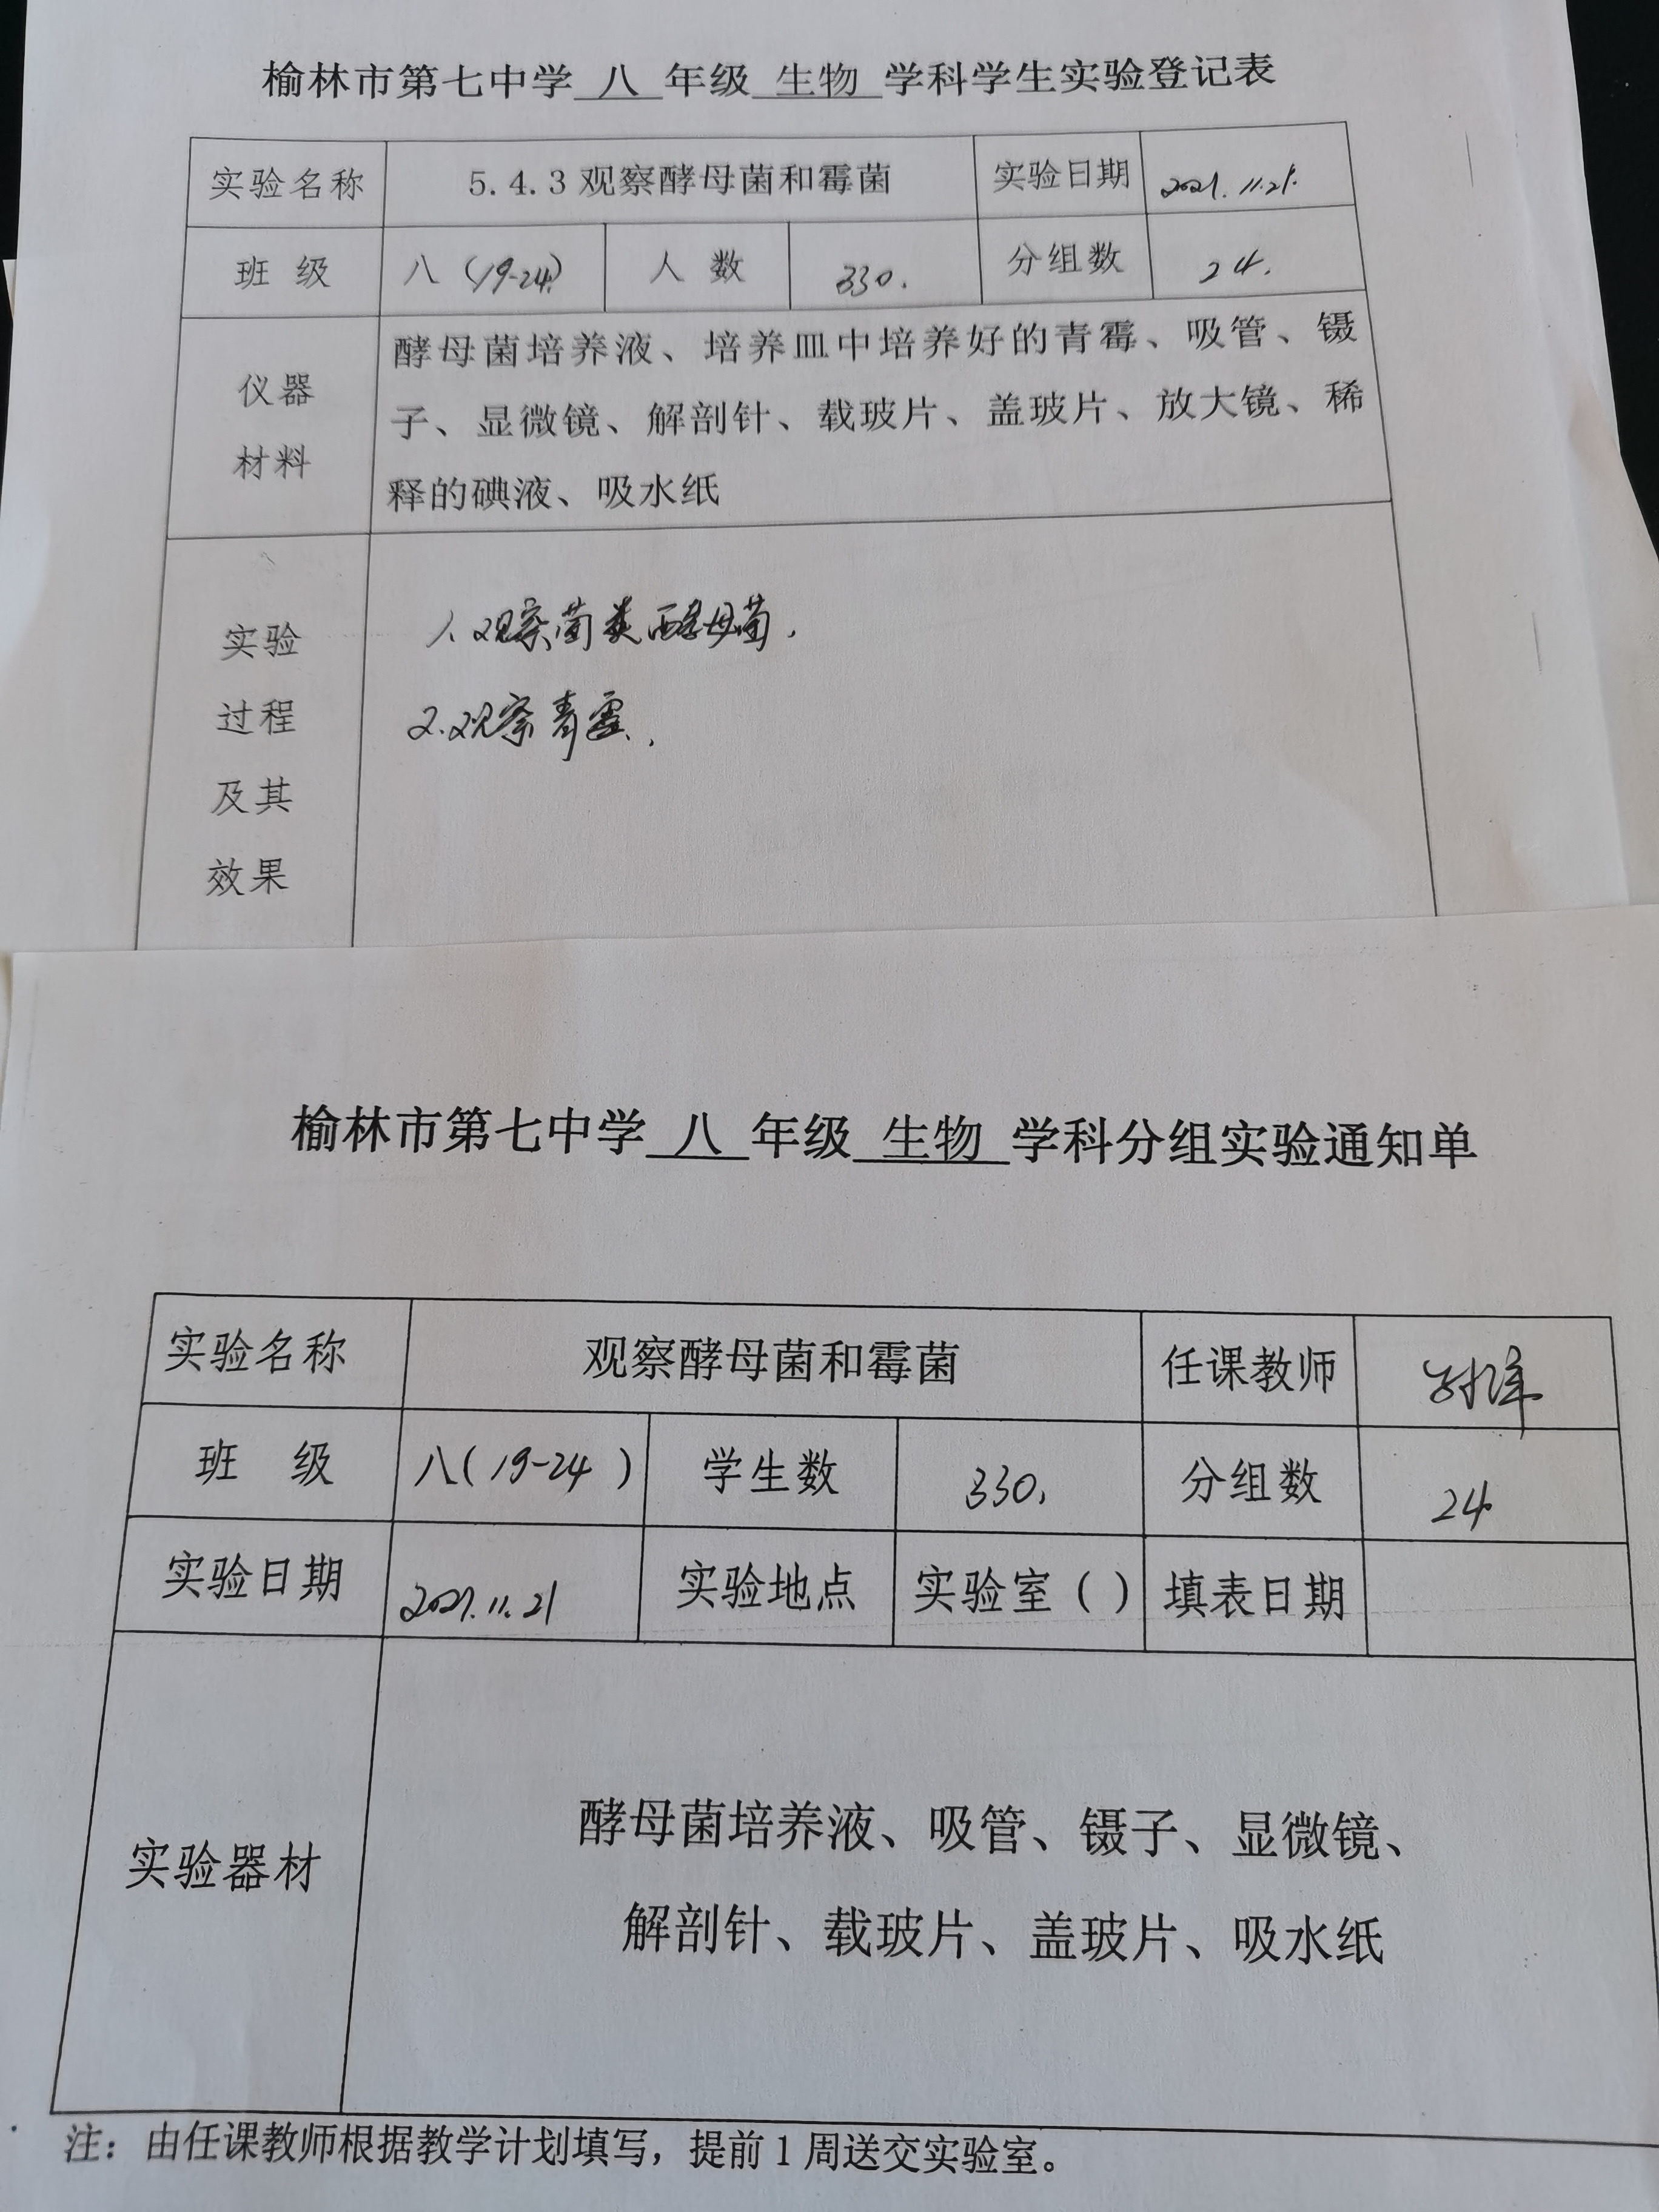 榆林市第七中学 八 年级 生物 学科学生实验登记表
实验名称 5.4.3观察酵母菌和霉菌 实验日期 2021.11.21.
班 级 八（19-24） 人 数 330. 分组数 24.
仪器材料 酵母菌培养液、培养皿中培养好的青霉、吸管、镊
子、显微镜、解剖针、载玻片、盖玻片、放大镜、稀
释的碘液、吸水纸
实验
过程
及其
效果
1.观察菌类酵母菌.
2.观察青霉.
榆林市第七中学 八 年级 生物 学科分组实验通知单
实验名称 观察酵母菌和霉菌 任课教师
班 级 八（19-24） 学生数 330. 分组数 24
实验日期 2021.11.21 实验地点 实验室（） 填表日期
实验器材
酵母菌培养液、吸管、镊子、显微镜、
解剖针、载玻片、盖玻片、吸水纸
注：由任课教师根据教学计划填写，提前1周送交实验室。